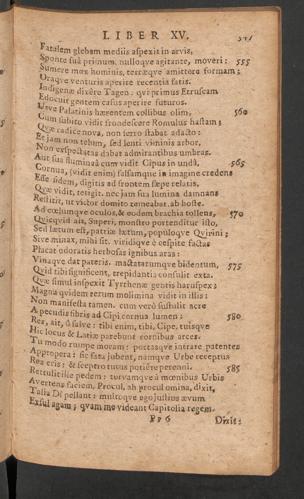 LIBER XV.
Fatalem glebam mediis aspexit in arvis,
Sponte suâ primùm, nulloque agitante, moveri: 555
Sumere mox hominis, terræque amittere formam;
Oraque venturis aperire recentia fatis.
Indigenæ dixêre Tagen: qui primus Etruscam
Edocuit gentem casus aperire futuros.
Utve Palatinis hærentem collibus olim, 560
Cùm subitò vidit frondescere Romulus hastam;
Quæ radice nova, non ferro stabat adacto:
Et jam non telum, sed lenti viminis arbor,
Non exspectatas dabat admirantibus umbras.
Aut sua flumineâ cùm vidit Cipus in undâ, 565
Cornua, (vidit enim) falsamque in imagine credens
Esse fidem, digitis ad frontem sæpe relatis,
Quæ vidit, tetigit. nec jam sua lumina damnans
Restitit, ut victor domito remeabat ab hoste.
Ad cœlumque oculos, & eodem brachia tollens, 570
Quicquid ait, Superi, monstro portenditur isto,
Seu lætum est, patriæ lætum, populoque Qvirini;
Sive minax, mihi sit. viridique è cespite factas
Placat odoratis herbosas ignibus aras:
Vinaque dat pateris. mactatarumque bidentum, 575
Quid sibi significent, trepidantia consulit exta.
Quæ simul inspexit Tyrrhenæ gentis haruspex;
Magna qvidem rerum molimina vidit in illis:
Non manifesta tamen. cum verò sustulit acre
A pecudis fibris ad Cipi cornua lumen: 580
Rex, ait, ô salve: tibi enim, tibi, Cipe, tuisque
Hic locus & Latiæ parebunt cornibus arces.
Tu modo rumpe moram: portasque intrare patentes
Appropera: sic fata jubent, namque Urbe receptus
Rex eris: & sceptro tutus potiêre perenni. 585
Rettulit ille pedem: torvamque à mœnibus Urbis
Avertens faciem, Procul, ah procul omina, dixit,
Talia Dî pellant: multoque ego justius ævum
Exsul agam; qvam me videant Capitolia regem.
Pp 6 Dixit: